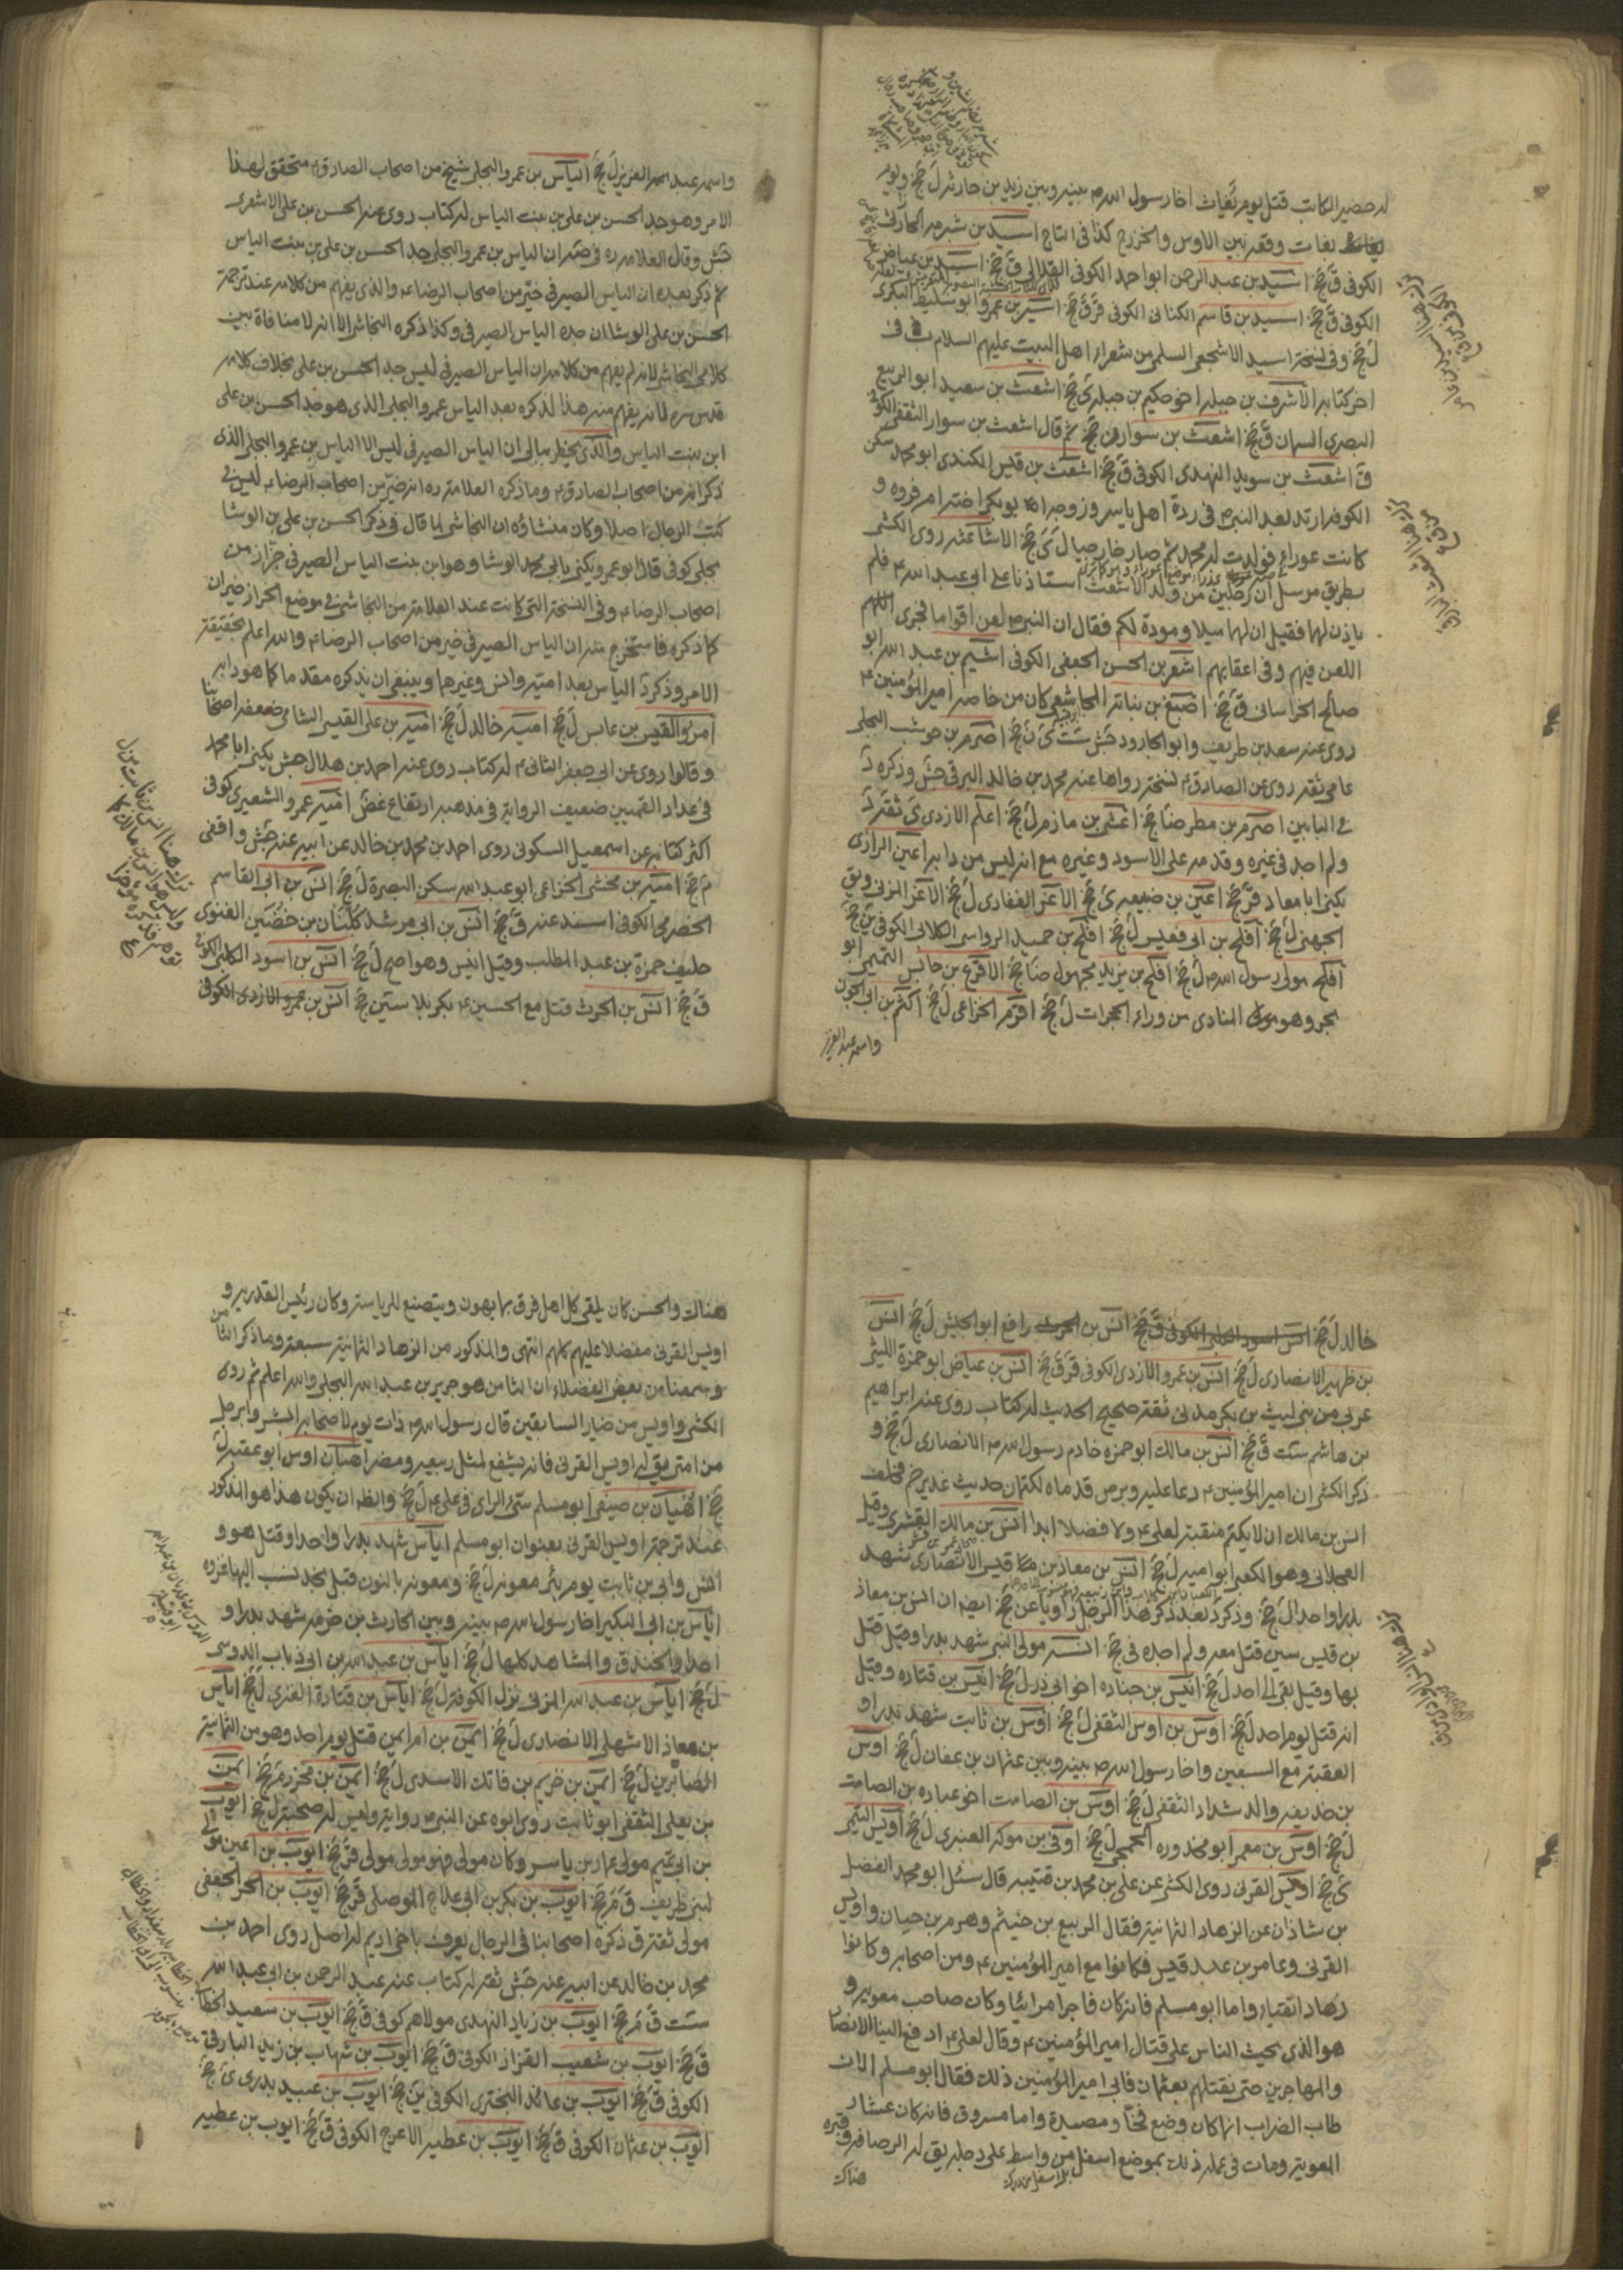 له حضير الكاتب قتل يوم بغاث اخا رسول الله ص بينه وبين زيد بن حارثة ل جخ ويوم
بغاث وقعة بين الاوس والخزرج كذا في التاج اسيد بن شبرمة الحارثي
الكوفي ق جخ اسيد بن عبد الرحمن ابو احمد الكوفي ق جخ اسيد بن عياض
الكوفي ق جخ اسيد بن قاسم الكناني الكوفي ق جخ اسير بن عمرو ابو سليط البكري
ل جخ وفي نسخة اسيد الاشجع السلمي من شعراء اهل البيت عليهم السلام ب في
اخر كتابه الاشرف بن جبلة اخو حكيم بن جبلة ي جخ اشعث بن سعيد ابو الربيع
البصري السمان ق جخ اشعث بن سوار ن جخ ثم قال اشعث بن سوار الثقفي الكوفي
ق اشعث بن سويد النهدي الكوفي ق جخ اشعث بن قيس الكندي ابو محمد سكن
الكوفة ارتد بعد النبي ص في ردة اهل ياسر وزوجه ابو بكر اخته ام فروة و
كانت عوراء فولدت له محمد ثم صار خارجيا ل ي جخ الاشاعثة روى الكشي
بطريق مرسل ان رجلين من ولد الاشعث استاذنا على ابي عبد الله ع فلم
ياذن لهما فقيل ان لهما ميلا ومودة لكم فقال ان النبي ص لعن اقواما فجرى اللهم
اللعن فيهم وفي اعقابهم اشعر بن الحسن الجعفي الكوفي اشيم بن عبد الله ابو
صالح الخراساني ق جخ اصبغ بن نباتة المجاشعي كان من خاصة امير المؤمنين ع
روى عنه سعد بن طريف وابو الجارود جش ست ي ن جخ اصرم بن حوشب البجلي
عامي ثقة روى عن الصادق ع نسخة رواها عنه محمد بن خالد البرقي جش وذكره د
في البابين اصرم بن مطر ضا جخ اعشى بن مازم ل جخ اعلم الازدي ي ثقة د
ولم اجد في غيره وقد مر على الاسود وغيره مع انه ليس من دابه اعين الرازي
يكنى ابا معاذ قر جخ اعين بن ضبيعة ي جخ الاغر الغفاري ل جخ الاغر المزني ويق
الجهني ل جخ افلح بن ابي قعيس ل جخ افلح بن حميد الرواسي الكلابي الكوفي ين جخ
افلح مولى رسول الله ص ل جخ افلح بن يزيد مجهول ضا جخ الاقرع بن حابس التميمي ابو
بحر وهو المنادي من وراء الحجرات ل جخ اقرم الخزاعي ل جخ اكثم بن ابي الجون
واسمه عبد العزيز
واسمه عبد العزيز ل جخ الياس بن عمرو البجلي شيخ من اصحاب الصادق ع متحقق لهذا
الامر وهو جد الحسن بن علي بن بنت الياس له كتاب روى عنه الحسن بن علي الاشعري
جش وقال العلامة ره في صه ان الياس بن عمرو البجلي جد الحسن بن علي بن بنت الياس
ثم ذكر بعده ان الياس الصيرفي خير من اصحاب الرضا ع والذي يفهم من كلامه عند ترجمة
الحسن بن علي الوشا ان جده الياس الصيرفي وكذا ذكره النجاشي الا انه لا منافاة بين
كلامي النجاشي لانه لم يفهم من كلامه ان الياس الصيرفي ليس جد الحسن بن علي بخلاف كلامه
قدس سره لانه يفهم منه هذا لذكره بعد الياس عمرو البجلي الذي هو جد الحسن بن علي
ابن بنت الياس والذي يخطر ببالي ان الياس الصيرفي ليس الا الياس بن عمرو البجلي الذي
ذكر انه من اصحاب الصادق ع وما ذكره العلامة ره انه خير من اصحاب الرضا ع ليس في
كتب الرجال اصلا وكان منشاؤه ان النجاشي لما قال في ذكر الحسن بن علي بن الوشا
بجلي كوفي قال ابو عمرو يكنى بابي محمد الوشا وهو ابن بنت الياس الصيرفي خزاز من
اصحاب الرضا ع وفي النسخة التي كانت عند العلامة من النجاشي في موضع الخزاز خيران
كما ذكره فاستخرج منه ان الياس الصيرفي خير من اصحاب الرضا ع والله اعلم بحقيقة
الامر وذكر د الياس بعد امية وانس وغيرهما وينبغي ان يذكره مقدما كما هو دابه
امرؤ القيس بن عابس ل جخ امية خالد ل جخ امية بن علي القيسي الشامي ضعفه اصحابنا
وقالوا روى عن ابي جعفر الثاني ع له كتاب روى عنه احمد بن هلال جش يكنى ابا محمد
في عداد القميين ضعيف الرواية في مذهبه ارتفاع غض امية عمرو الشعيري كوفي
اكثر كتابه عن اسمعيل السكوني روى احمد بن محمد بن خالد عن ابيه عنه جش واقفي
م جخ امية بن مخشي الخزاعي ابو عبد الله سكن البصرة ل جخ انس بن ابي القاسم
الحضرمي الكوفي اسند عنه ق جخ انس بن ابي مرثد كناز بن حضين الغنوي
حليف حمزة بن عبد المطلب وقيل انيس وهو اصح ل جخ انس بن اسود الكلبي الكوفي
ق جخ انس بن الحرث قتل مع الحسين ع بكربلا سين جخ انس بن عمرو الازدي الكوفي
خالد ل جخ انس اسود الكلبي الكوفي ق جخ انس بن الحرث رافع ابو الجيش ل جخ انس
بن ظهير الانصاري ل جخ انس بن عمرو الازدي الكوفي ق جخ انس بن عياض ابو حمزة الليثي
عربي من بني ليث بن بكر مدني ثقة صحيح الحديث له كتاب روى عنه ابراهيم
بن هاشم ست ق جخ انس بن مالك ابو حمزة خادم رسول الله ص الانصاري ل جخ و
ذكر الكشي ان امير المؤمنين ع دعا عليه وبرص قدماه لكتمان حديث غدير خم فحلف
انس بن مالك ان لا يكتم منقبة لعلي ع ولا فضلا ابدا انس بن مالك القشيري وقيل
العجلاني وهو الكعبي ابو امية ل جخ انس بن معاذ بن قيس الانصاري شهد
بدرا واحدا ل جخ وذكر د بعد ذكر هذا الرجل راويا عن جخ ايضا ان انس بن معاذ
بن قيس سين قتل معه ولم اجده في جخ انسة مولى النبي شهد بدرا وقيل قتل
بها وقيل بقي الى احد ل جخ انيس بن جنادة اخو ابي ذر ل جخ انيس بن قتادة وقيل
انه قتل يوم احد ل جخ اوس بن اوس الثقفي ل جخ اوس بن ثابت شهد بدرا و
العقبة مع السبعين واخا رسول الله ص بينه وبين عثمان بن عفان ل جخ اوس
بن حذيفة والد شداد الثقفي ل جخ اوس بن الصامت اخو عبادة بن الصامت
ل جخ اوس بن معمر ابو محذورة الجمحي ل جخ اوفى بن موله العنبري ل جخ اويس التيمي
ي جخ اويس القرني روى الكشي عن علي بن محمد بن قتيبة قال سئل ابو محمد الفضل
بن شاذان عن الزهاد الثمانية فقال الربيع بن خيثم وهرم بن حيان واويس
القرني وعامر بن عبد قيس فكانوا مع امير المؤمنين ع ومن اصحابه وكانوا
زهادا اتقياء واما ابو مسلم فانه كان فاجرا مرائيا وكان صاحب معوية و
هو الذي يحث الناس على قتال امير المؤمنين ع وقال لعلي ع ادفع الينا الانصار
والمهاجرين حتى نقتلهم بعثمان فابى امير المؤمنين ذلك فقال ابو مسلم الان
طاب الضراب انما كان وضع فخا ومصيدة واما مسروق فانه كان عشارا
لمعوية ومات في عمله ذلك بموضع اسفل من واسط على دجلة يق له الرصافة وقبره
هناك
هناك والحسن كان يلقى كل اهل فرق بما يهوون ويتصنع للرياسة وكان رئيس القدرية و
اويس القرني مفضلا عليهم كلهم انتهى والمذكور من الزهاد الثمانية سبعة وما ذكر الثامن
وسمعنا من بعض الفضلاء ان الثامن هو جرير بن عبد الله البجلي والله اعلم ثم روى
الكشي واويس من خيار السابقين قال رسول الله ص ذات يوم لاصحابه ابشروا برجل
من امتي يق له اويس القرني فانه يشفع لمثل ربيعة ومضر اهبان اوس ابو عقبة ل
جخ اهبان بن صيفي ابو مسلم سيئ الراي في علي ع ل جخ والظ ان يكون هذا هو المذكور
عند ترجمة اويس القرني بعنوان ابو مسلم اياس شهد بدرا واحدا وقتل هو و
انس وابي بن ثابت يوم بئر معونة ل جخ ومعونة بالنون قبل نجد نسب اليها غزوة
اياس بن ابي البكير اخا رسول الله ص بينه وبين الحارث بن خزمة شهد بدرا و
احدا والخندق والمشاهد كلها ل جخ اياس بن عبد الله بن ابي ذباب الدوسي
ل جخ اياس بن عبد الله المزني نزل الكوفة ل جخ اياس بن قتادة العنبري ل جخ اياس
بن معاذ الاشهلي الانصاري ل جخ ايمن بن ام ايمن قتل يوم احد وهو من الثمانية
الصابرين ل جخ ايمن بن خريم بن فاتك الاسدي ل جخ ايمن بن محرز م جخ ايمن
بن يعلى الثقفي ابو ثابت روى ابوه عن النبي ص رواية وليس له صحبة ل جخ ايوب
بن ابي تميم مولى عمار بن ياسر وكان مولى فهو مولى مولى قر جخ ايوب بن اعين مولى
لبني طريف ق م جخ ايوب بن بكر بن ابي علاج الموصلي قر جخ ايوب بن الحر الجعفي
مولى ثقة ق ذكره اصحابنا في الرجال يعرف باخي اديم له اصل روى احمد بن
محمد بن خالد عن ابيه عنه جش ثقة له كتاب عنه عبد الرحمن بن ابي عبد الله
ست ق م جخ ايوب بن زياد النهدي مولاهم كوفي ق جخ ايوب بن سعيد الخطابي
ق جخ ايوب بن شعيب القزاز الكوفي ق جخ ايوب بن شهاب بن زيد البارقي
الكوفي ق جخ ايوب بن عائذ البختري الكوفي ين جخ ايوب بن عبيد بدري ي جخ
ايوب بن عثمان الكوفي ق جخ ايوب بن عطية الاعرج الكوفي ق جخ ايوب بن عطية